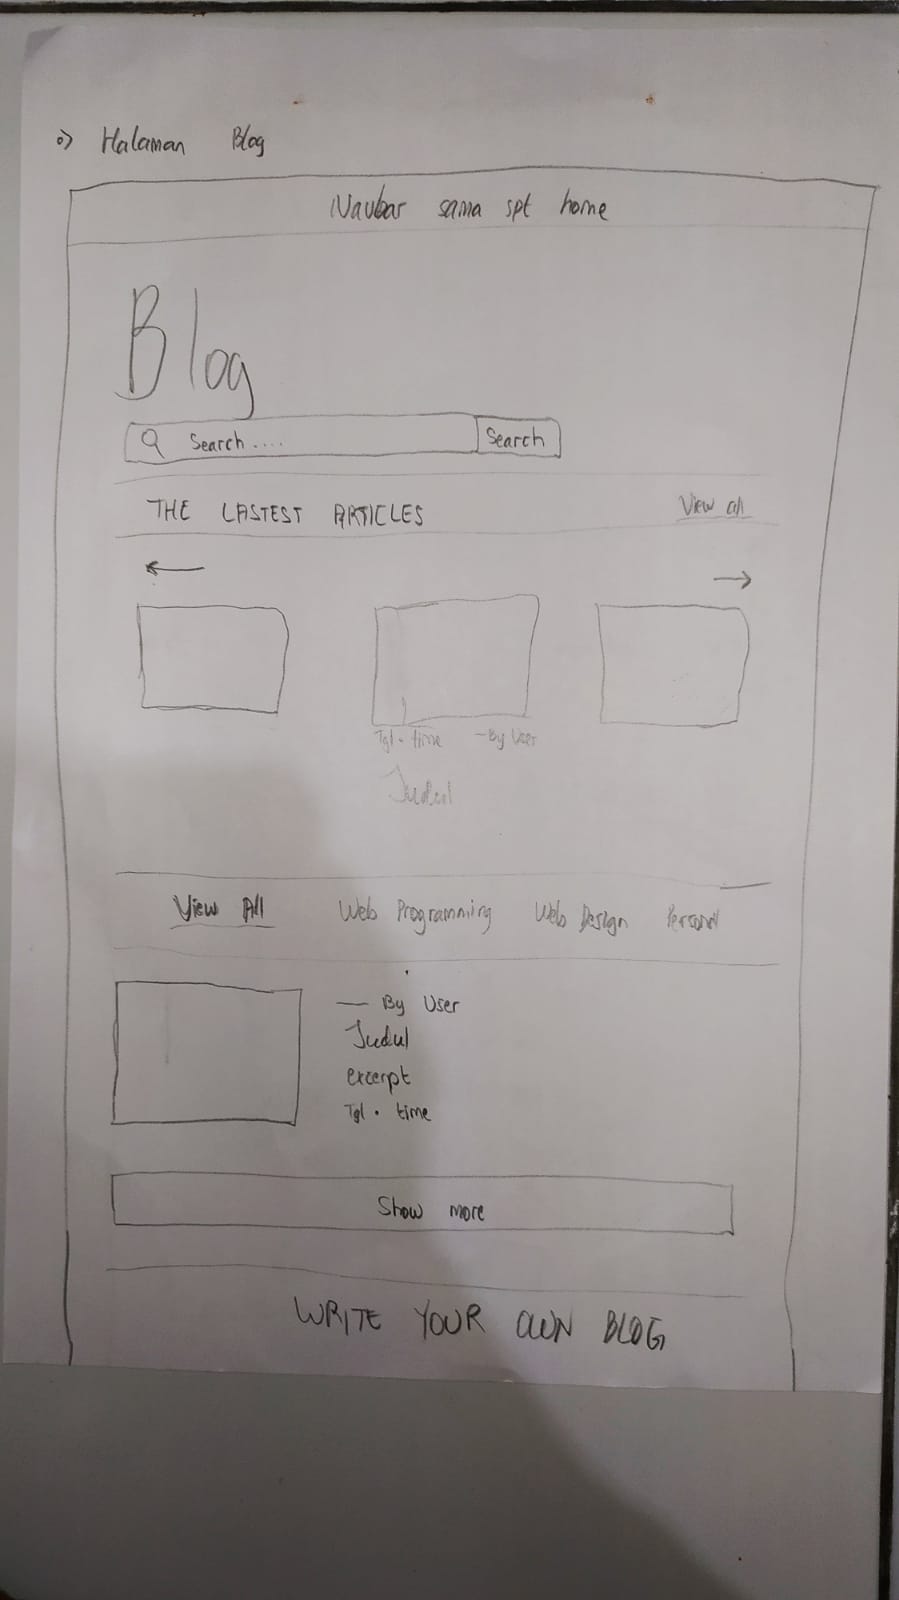 o) Halaman Blog
Navbar sama spt home
Blog
Search....
Search
THE LASTEST ARTICLES
View all
Tgl • time — By User
Judul
View All Web Programming Web Design Personal
— By User
Judul
excerpt
Tgl • time
Show more
WRITE YOUR OWN BLOG